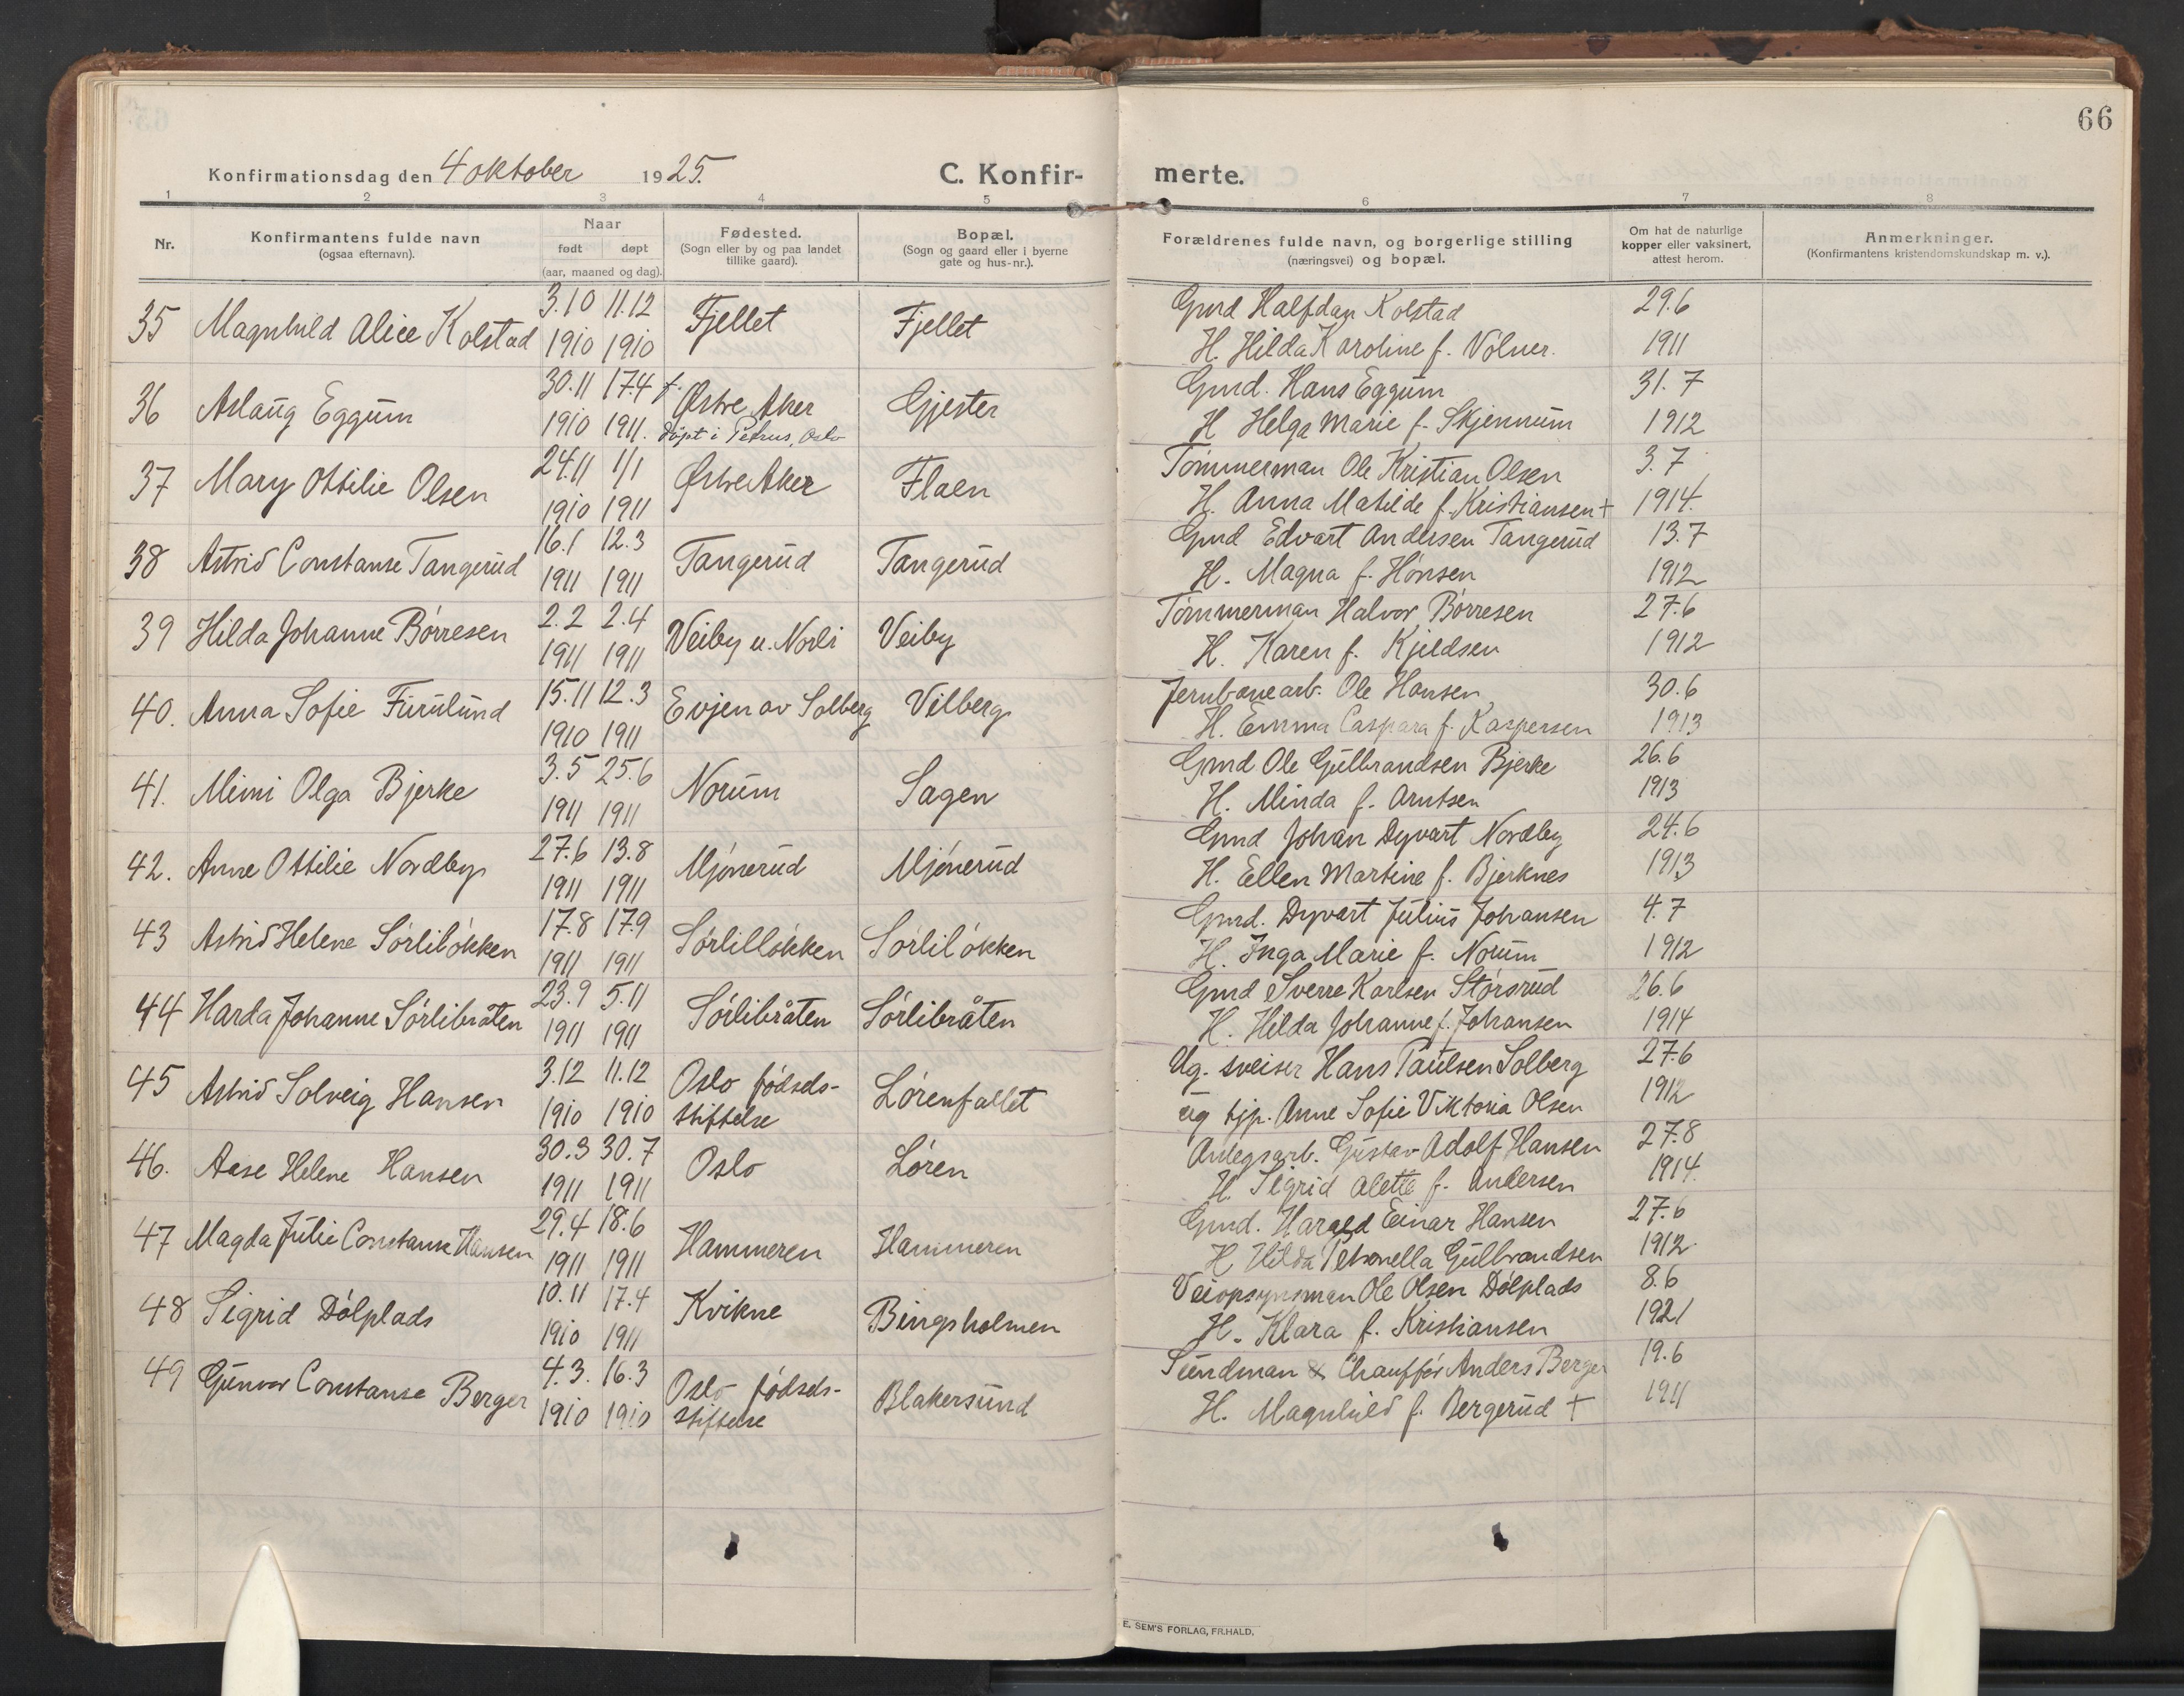 66
Konfirmationsdag den 4 oktober 1925.
C. Konfir-
merte.
1 2 3 4 5 6 7 8
Nr.
Konfirmantens fulde navn
(ogsaa efternavn).
Naar
født døpt
(aar, maaned og dag).
Fødested.
(Sogn eller by og paa landet
tillike gaard).
Bopæl.
(Sogn og gaard eller i byerne
gate og hus-nr.).
Forældrenes fulde navn, og borgerlige stilling
(næringsvei) og bopæl.
Om hat de naturlige
kopper eller vaksinert,
attest herom.
Anmerkninger.
(Konfirmantens kristendomskundskap m. v.).
35 Magnhild Alice Kolstad 3.10 11.12 Fjellet Fjellet Gmd Halfdan Kolstad 29.6
1910 1910 H. Hilda Karoline f. Volner. 1911
36 Aslaug Eggum 30.11 17.4 f. Østre Aker Gjester Gmd. Hans Eggum 31.7
1910 1911. døpt i Petrus, Oslo H Helga Marie f. Skjennum 1912
37 Mary Ottilie Olsen 24.11 1/1 Østre Aker Flaen Tømmerman Ole Kristian Olsen 3.7
1910 1911 H. Anna Matilde f. Kristiansen + 1914.
38 Astrid Constanse Tangerud 16.1 12.3 Tangerud Tangerud Gmd Edvart Andersen Tangerud 13.7
1911 1911 H. Magna f. Hønsen 1912
39 Hilda Johanne Børresen 2.2 2.4 Veiby u. Norli Veiby Tømmerman Halvor Børresen 27.6
1911 1911 H. Karen f. Kjeldsen 1912
40. Anna Sofie Furulund 15.11 12.3 Evjen av Solberg Vilberg Jernbanearb. Ole Hansen 30.6
1910 1911 H. Emma Caspara f. Kaspersen 1913
41. Mimi Olga Bjerke 3.5 25.6 Norum Sagen Gmd Ole Gulbrandsen Bjerke 26.6
1911 1911 H. Minda f. Arntsen 1913
42. Anne Ottilie Nordby 27.6 13.8 Mjønerud Mjønerud Gmd Johan Dyvart Nordby 24.6
1911 1911 H. Ellen Martine f. Bjerknes 1913
43 Astrid Helene Sørliløkken 17.8 17.9 Sørlilløkken Sørliløkken Gmd. Dyvart Julius Johansen 4.7
1911 1911 H. Inga Marie f. Norum 1912
44 Harda Johanne Sørlibråten 23.9 5.11 Sørlibråten Sørlibråten Gmd Sverre Karlsen Størsrud 26.6
1911 1911 H. Hilda Johanne f. Johansen 1914
45 Astrid Solveig Hansen 3.12 11.12 Oslo fødsels- Lørenfallet Ug. sveiser Hans Paulsen Solberg 27.6
1910 1910 stiftelse ug tjp. Anne Sofie Viktoria Olsen 1912
46. Aase Helene Hansen 30.3 30.7 Oslo Løren Anlegsarb. Gustav Adolf Hansen 27.8
1911 1911 H. Sigrid Alette f. Andersen 1914.
47 Magda Julie Constanse Hansen 29.4 18.6 Hammeren Hammeren Gmd. Harald Einar Hansen 27.6
1911 1911 H Hilda Petronella Gulbrandsen 1912
48 Sigrid Dølplads 10.11 17.4 Kvikne Bingsholmen Veiopsynsman Ole Olsen Dølplads 8.6
1910 1911 H. Klara f. Kristiansen 1921
49 Gunvor Constanse Berger 4.3. 16.3 Oslo fødsels- Blakersund Sundman & Chauffør Anders Berger 19.6
1910 1910 stiftelse H. Magnhild f. Bergerud + 1911
E. SEM'S FORLAG, FR.HALD.